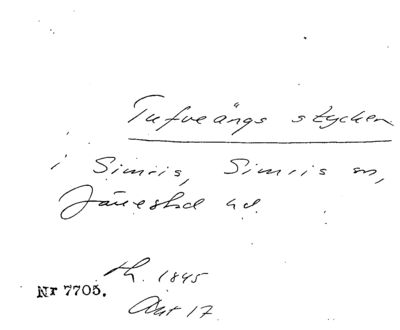 Tufveängs stycken
i Simris, Simris sn,
Järrestad hd
th. 1845
Nr 7705.
Akt 17